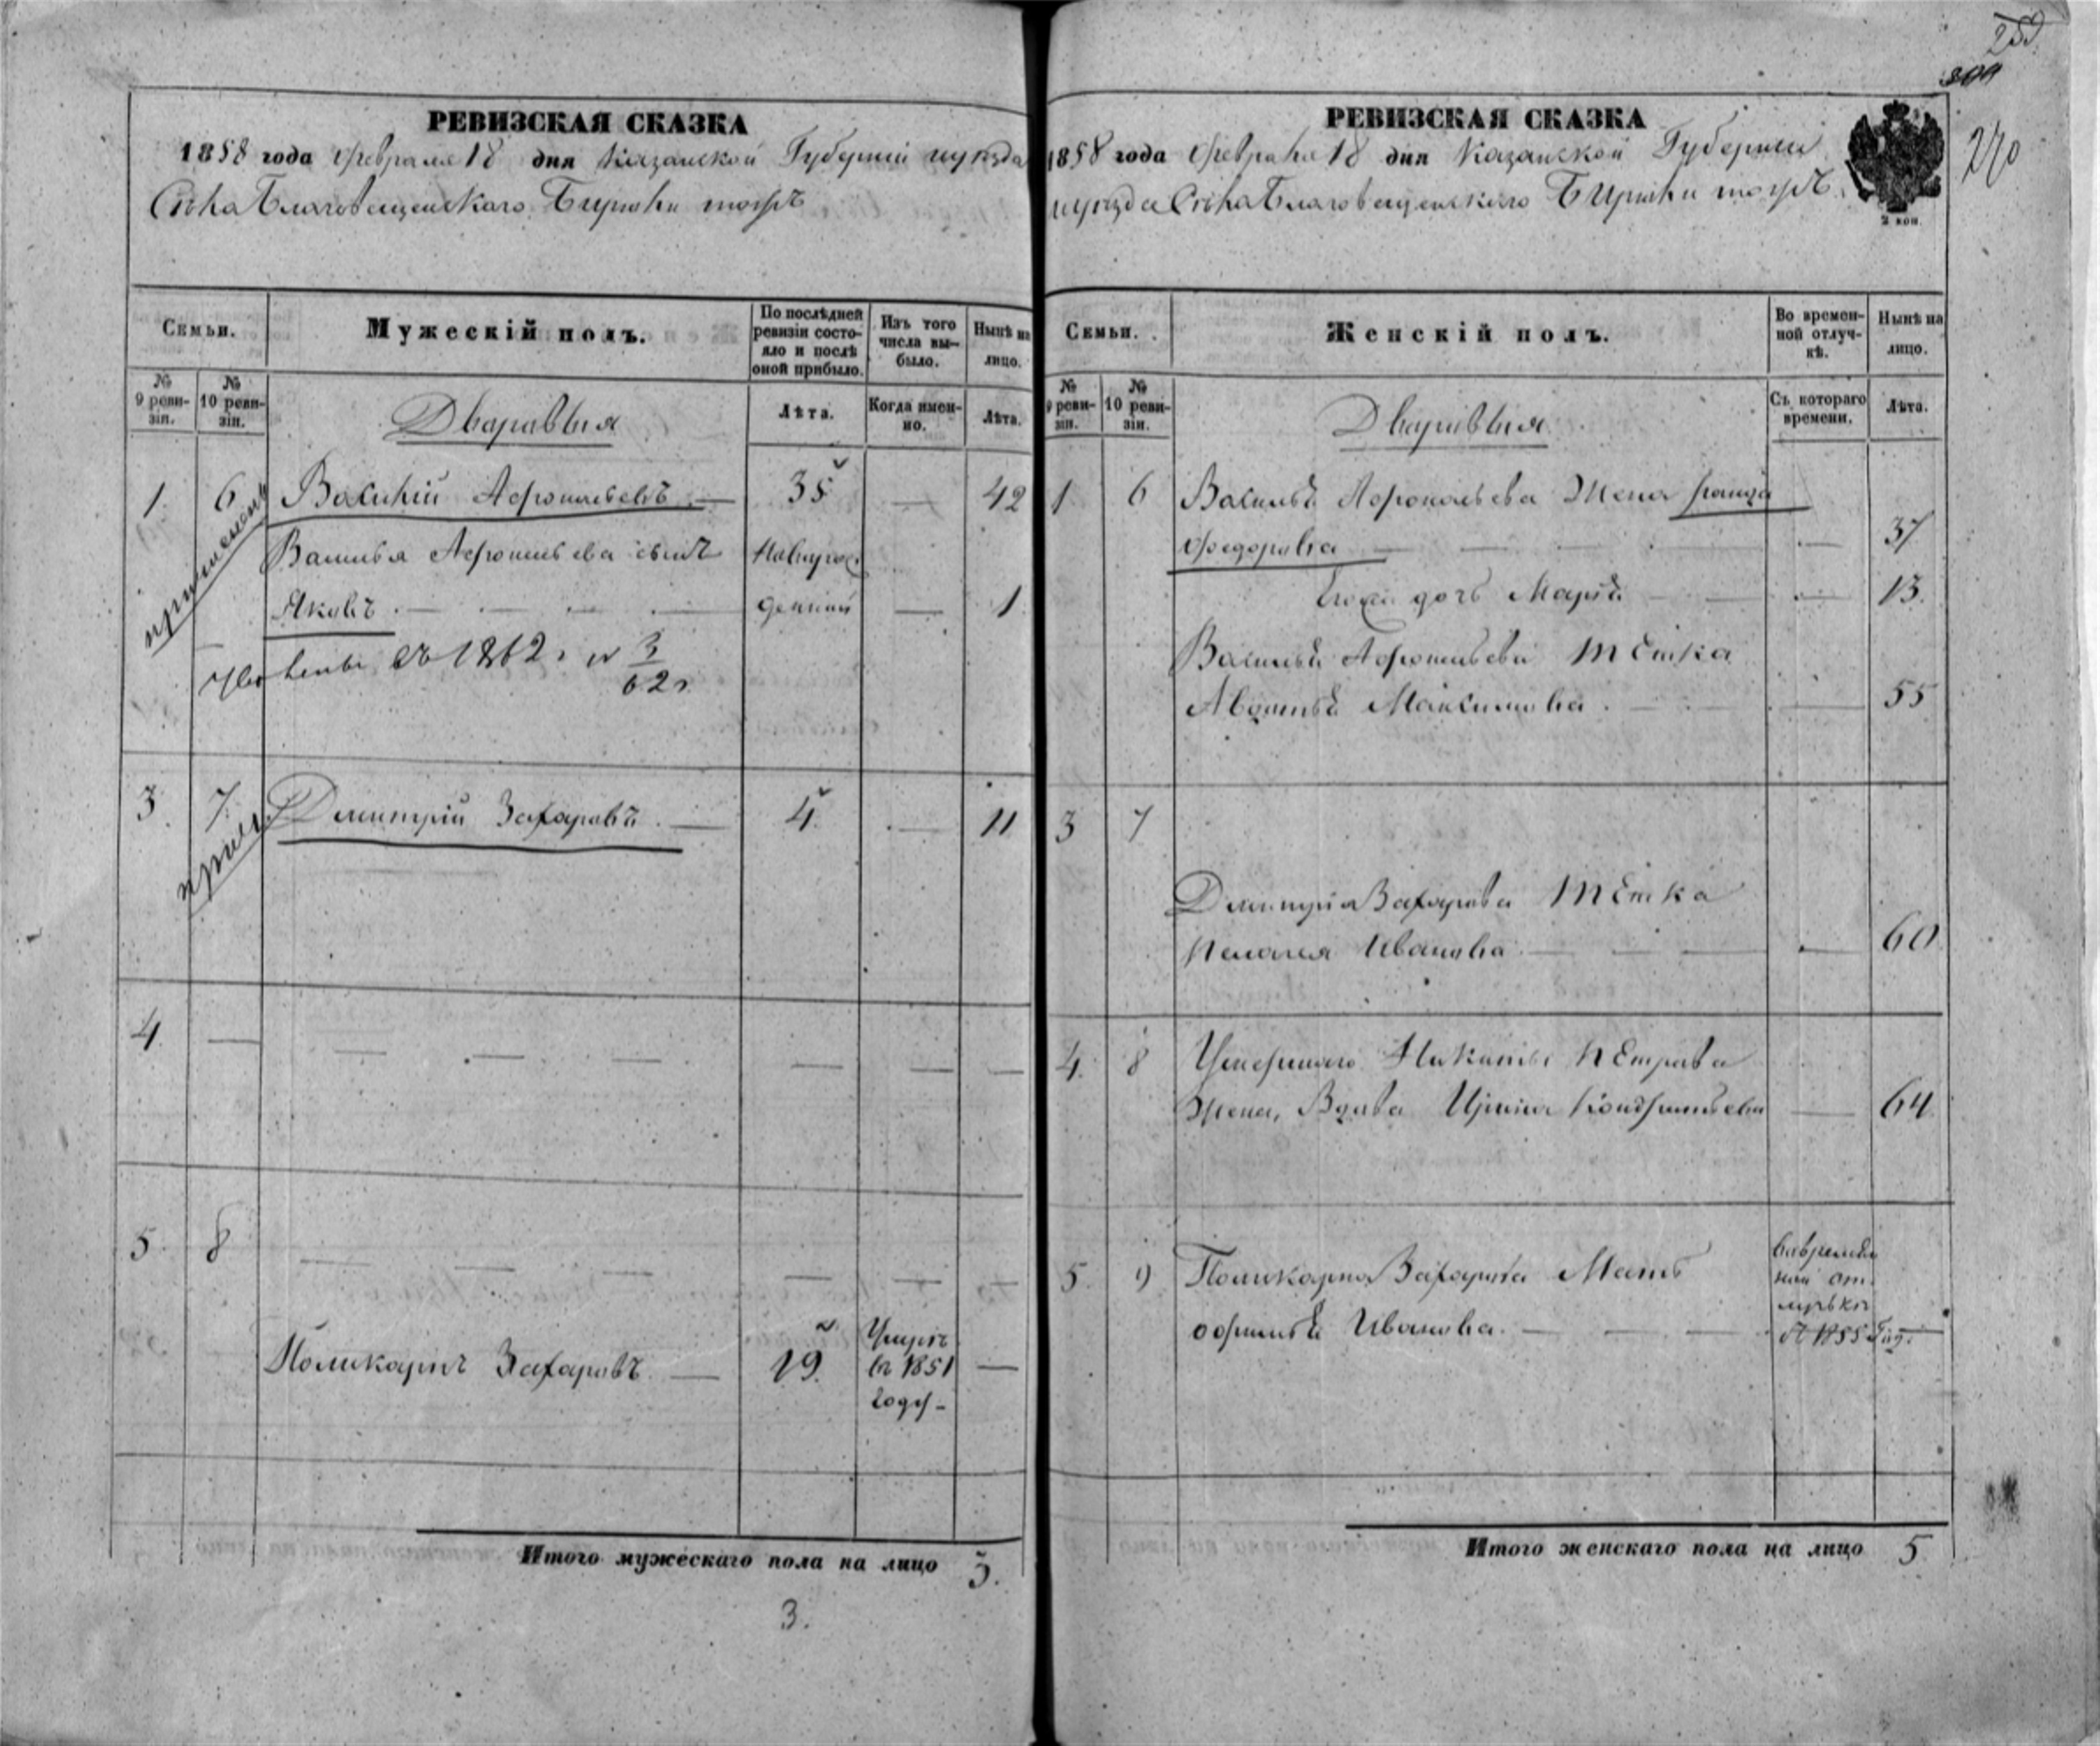 РЕВИЗСКАЯ СКАЗКА
1858 года Февраля 18 дня Казанской Губернии и уезда
Села Благовещенскаго Бирюли тожъ
Семьи.
Мужескій полъ.
По послѣдней ревизіи состо-
яло и послѣ
оной прибыло.
Изъ того
числа вы-
было.
Нынѣ на
лицо.
№
9 реви-
зіи.
№
10 реви-
зіи.
Дваравыя
Лѣта.
Когда имен-
но.
Лѣта.
1 6 Василій — 35 — 42
Василья сынъ Новорож
Яковъ — денный — 1
съ 1862 г № 3
62 г
3. 7. Дмитрій Захаровъ — 4 — 11
4 —
5. 8
Поликарпъ Захаровъ — 19. Умеръ
въ 1851 —
году -
Итого мужескаго пола на лицо 3.
3.
РЕВИЗСКАЯ СКАЗКА
1858 года Февраля 18 дня Казанской Губернии
и уезда Села Благовещенскаго Бирюли тожъ
2 коп
270
Семьи.
Женскій полъ.
Во времен-
ной отлуч-
кѣ.
Нынѣ на
лицо.
№
9 реви-
зіи.
№
10 реви-
зіи.
Дваравыя
Съ котораго
времени.
Лѣта.
1 6 Жена
Федоровна — 37
дочь Марья — 13.
Тетка
Авдотья Максимова — 55
3 7
Дмитрія Захарова Тетка
Пелагея Иванова — 60
4. 8 Умершаго Никиты Петрова
Жена, Вдава Ирина Кондратьева — 64
5. 9 Поликарпа Захарова Мать
Иванова. — съ 1855 год.
Итого женскаго пола на лицо 5